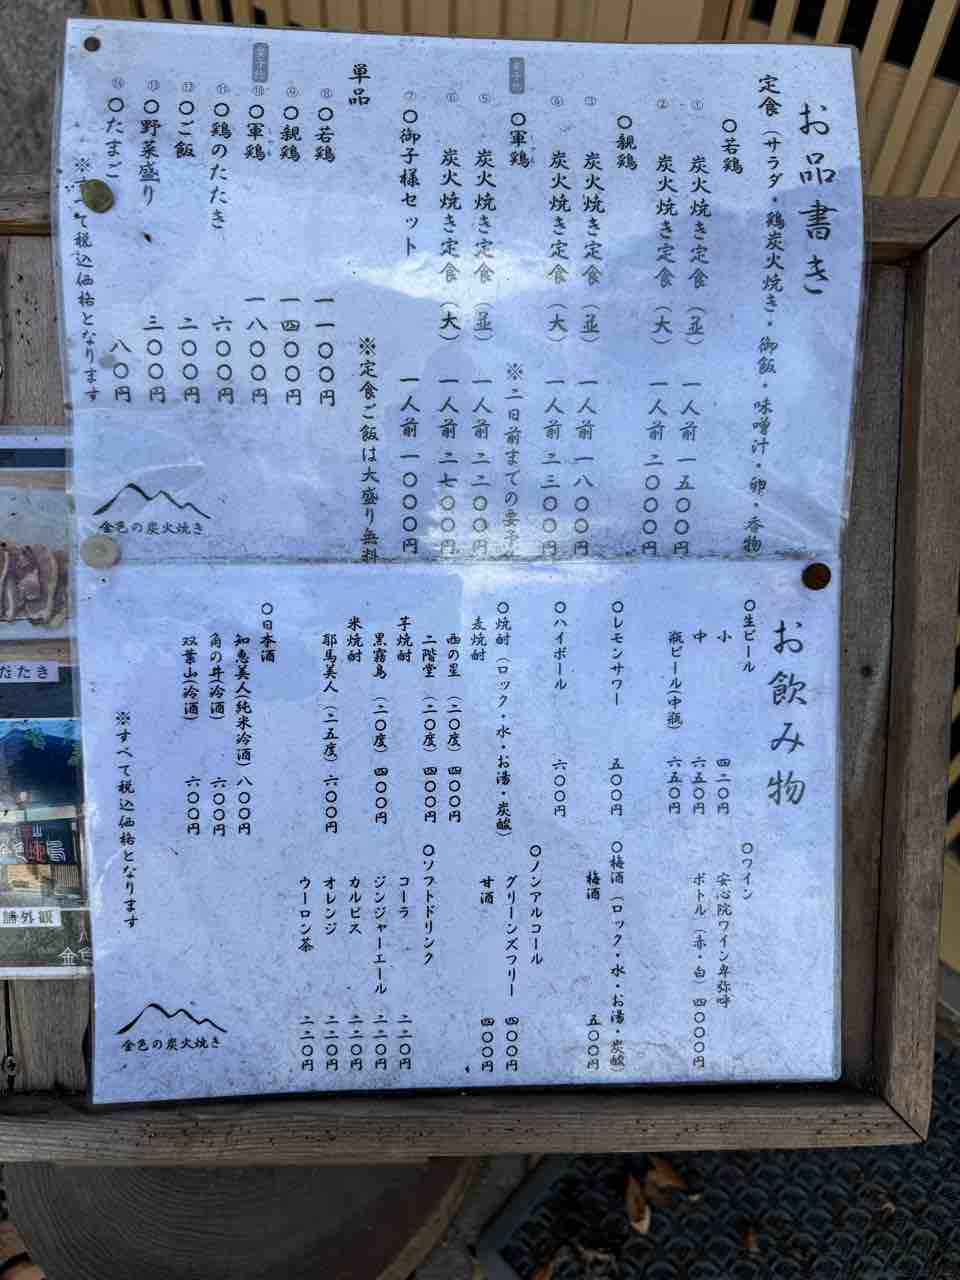 お品書き
定食（サラダ・鶏炭火焼き・御飯・味噌汁・卵・香物
〇若鶏
① 炭火焼き定食（並） 一人前 一五〇〇円
② 炭火焼き定食（大） 一人前 二〇〇〇円
〇親鶏
③ 炭火焼き定食（並） 一人前 一八〇〇円
④ 炭火焼き定食（大） 一人前 二三〇〇円
要予約
〇軍鶏 ※二日前までの要予
⑤ 炭火焼き定食（並） 一人前 二二〇〇円
⑥ 炭火焼き定食（大） 一人前 二七〇〇円
⑦ 〇御子様セット 一人前 一〇〇〇円
単品 ※定食ご飯は大盛り無料
⑧ 〇若鶏 一一〇〇円
⑨ 〇親鶏 一四〇〇円
要予約
⑩ 〇軍鶏 一八〇〇円
⑪ 〇鶏のたたき 六〇〇円
⑫ 〇ご飯 二〇〇円
⑬ 〇野菜盛り 三〇〇円
⑭ 〇たまご 八〇円
※すべて税込価格となります
金色の炭火焼き
お飲み物
〇生ビール
小 四二〇円
中 六五〇円
瓶ビール(中瓶) 六五〇円
〇レモンサワー 五〇〇円
〇ハイボール 六〇〇円
〇焼酎（ロック・水・お湯・炭酸）
麦焼酎
西の星（二〇度） 四〇〇円
二階堂（二〇度） 四〇〇円
芋焼酎
黒霧島（二〇度） 四〇〇円
米焼酎
耶馬美人（二五度） 六〇〇円
〇日本酒
知恵美人(純米冷酒) 八〇〇円
角の井(冷酒) 六〇〇円
双葉山(冷酒) 六〇〇円
〇ワイン
安心院ワイン卑弥呼
ボトル（赤・白） 四〇〇〇円
〇梅酒（ロック・水・お湯・炭酸）
梅酒 五〇〇円
〇ノンアルコール
グリーンズフリー 四〇〇円
甘酒 四〇〇円
〇ソフトドリンク
コーラ 二二〇円
ジンジャーエール 二二〇円
カルピス 二二〇円
オレンジ 二二〇円
ウーロン茶 二二〇円
※すべて税込価格となります
金色の炭火焼き
だたき
舗外観
金色